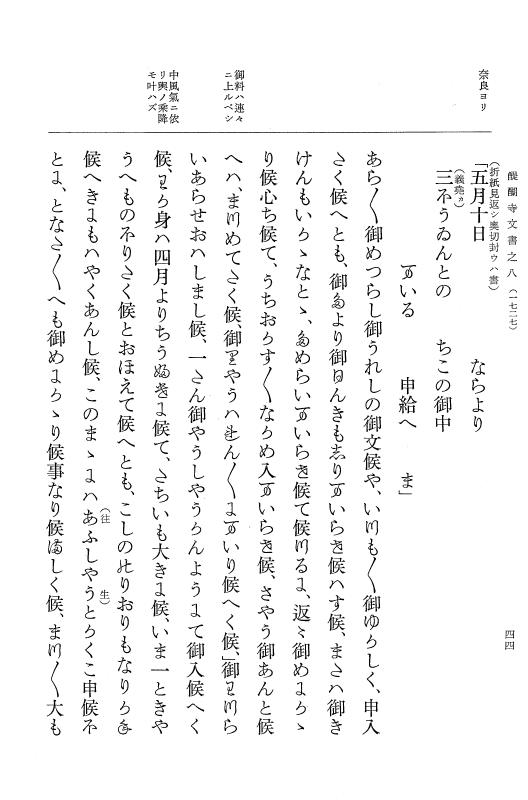 醍醐寺文書之八(一七二七)
四四
奈良ヨリ
(折紙見返シ奥切封ウハ書)
「五月十日　ならより
(義堯カ)
三ほうゐんとの　ちこの御中
まいる　申給へ　ま」
あら〱御めつらし御うれしの御文候や、いつも〱御ゆかしく、申入
たく候へとも、御たより御ひんきもしりまいらせ候ハす候、またハ御き
けんもいかゝなとゝ、ためらいまいらせ候て候つるに、返〻御めにかゝ
り候心ち候て、うちおかす〱なかめ入まいらせ候、さやう御あんと候
御料ハ連々
ニ上ルベシ
へハ、まつめてたく候、御りやうハれん〱にまいり候へく候、」御わつら
いあらせおハしまし候、一たん御やうしやうかんようにて御入候へく
中風氣ニ依
リ輿ノ乘降
モ叶ハズ
候、わか身ハ四月よりちうふきに候て、たちいも大きに候、いま一ときや
うへものほりたく候とおほえて候へとも、こしののりおりもなりかね
候へきにもハやくあんし候、このまゝにハあふしやう(往生)とかくこ申候ほ
とに、となた〱へも御めにかゝり候事なり候ましく候、まつ〱大も